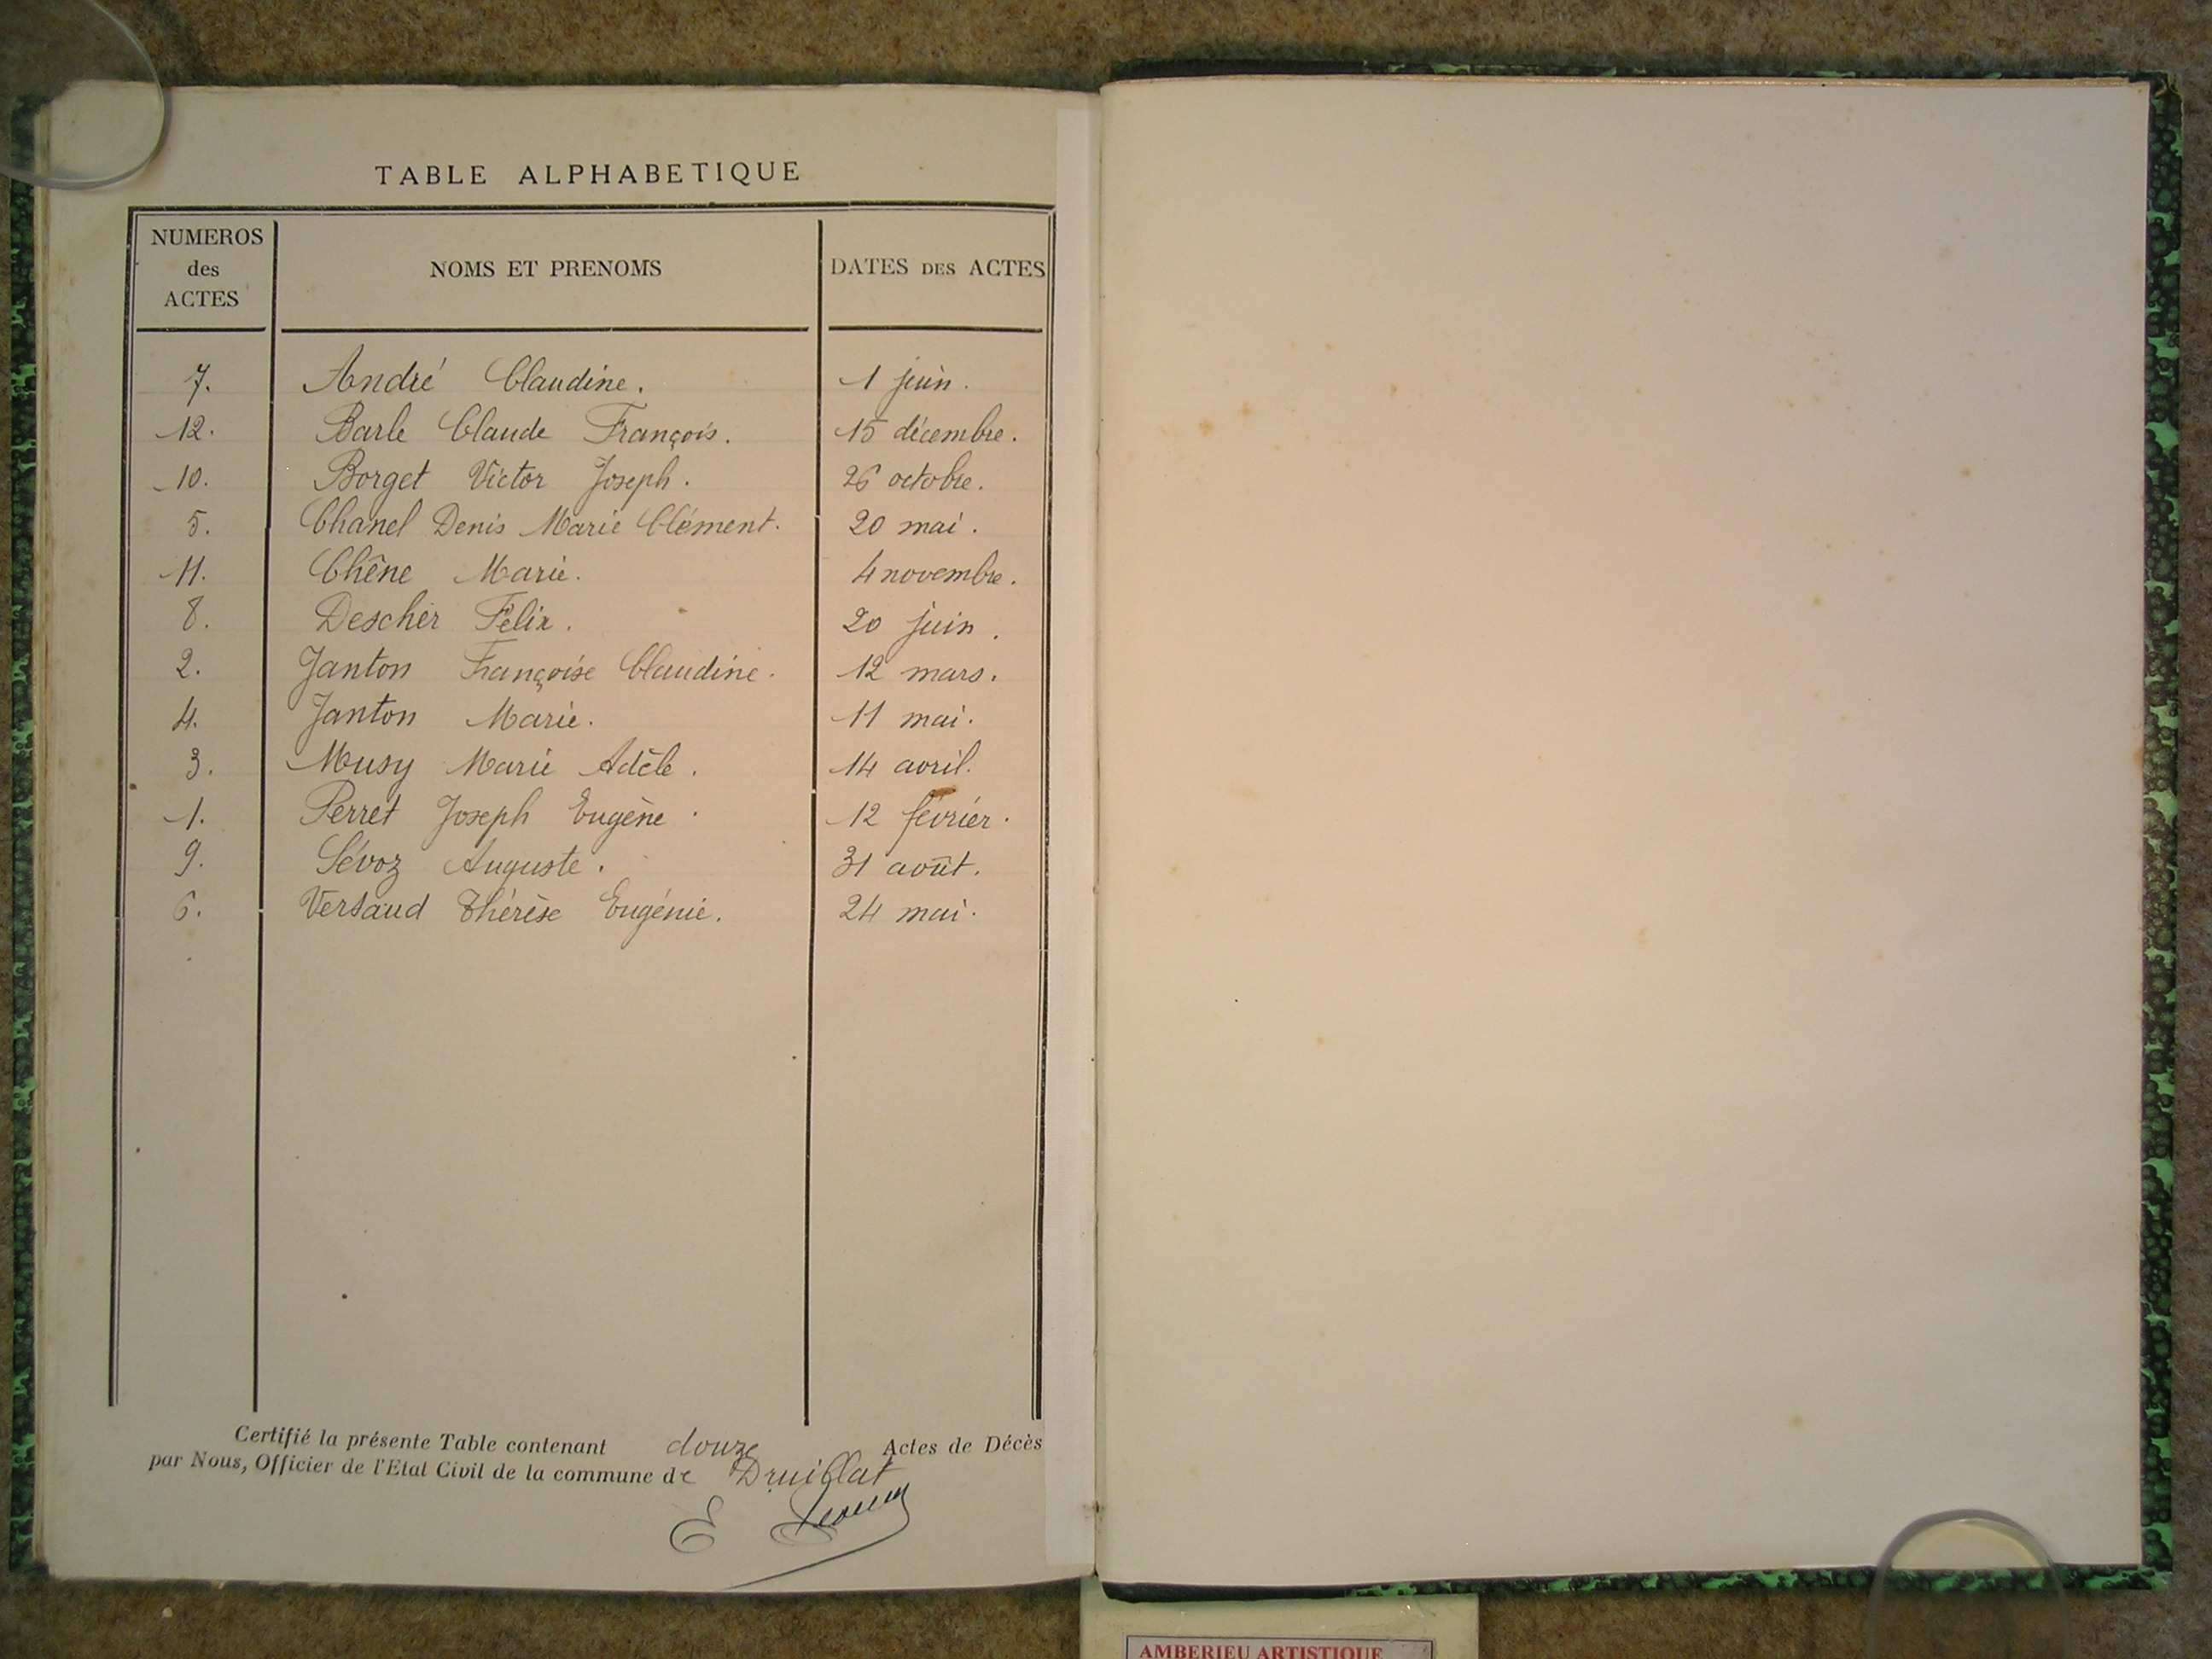 TABLE ALPHABETIQUE
NUMEROS des ACTES NOMS ET PRENOMS DATES DES ACTES
7. André Claudine. 1 juin.
12. Barle Claude François. 15 décembre.
10. Borget Victor Joseph. 26 octobre.
5. Chanel Denis Marie Clément. 20 mai.
11. Chêne Marie. 4 novembre.
8. Descher Félix. 20 juin.
2. Janton Françoise Claudine. 12 mars.
4. Janton Marie. 11 mai.
3. Musy Marie Adèle. 14 avril.
1. Perret Joseph Eugène. 12 février.
9. Sévoz Auguste. 31 août.
6. Versaud Thérèse Eugénie. 24 mai.
Certifié la présente Table contenant douze Actes de Décès
par Nous, Officier de l'Etat Civil de la commune de Druillat
E
AMBERIEU ARTISTIQUE